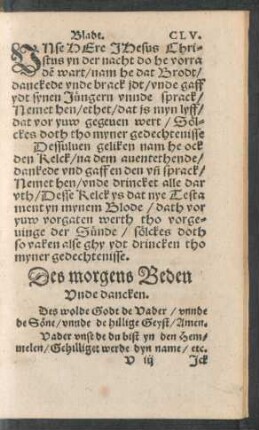 Bladt. CLV.
VNse HEre JHesus Chri-
stus yn der nacht do he vorra
dē wart / nam he dat Brodt /
danckede vnde brack jdt / vnde gaff
ydt synen Jüngern vnnde sprack /
Nemet hen / ethet / dat is myn lyff /
dat vor yuw gegeuen wert / Söl-
ckes doth tho myner gedechtenisse
Dessuluen geliken nam he ock
den Kelck / na dem auentethende /
danckede vnd gaff en den vñ sprack /
Nemet hen / vnde drincket alle dar
vth / Desse Kelck ys dat nye Testa
ment yn mynem Blode / dath vor
yuw vorgaten werth tho vorge-
uinge der Sünde / sölckes doth
so vaken alse ghy ydt drincken tho
myner gedechtenisse.
Des morgens Beden
Vnde dancken.
Des wolde Godt de Vader / vnnde
de Söne / vnnde de hillige Geyst / Amen.
Vader vnse de du bist yn den Hem-
melen / Gehilliget werde dyn name / etc.
V iij Jck